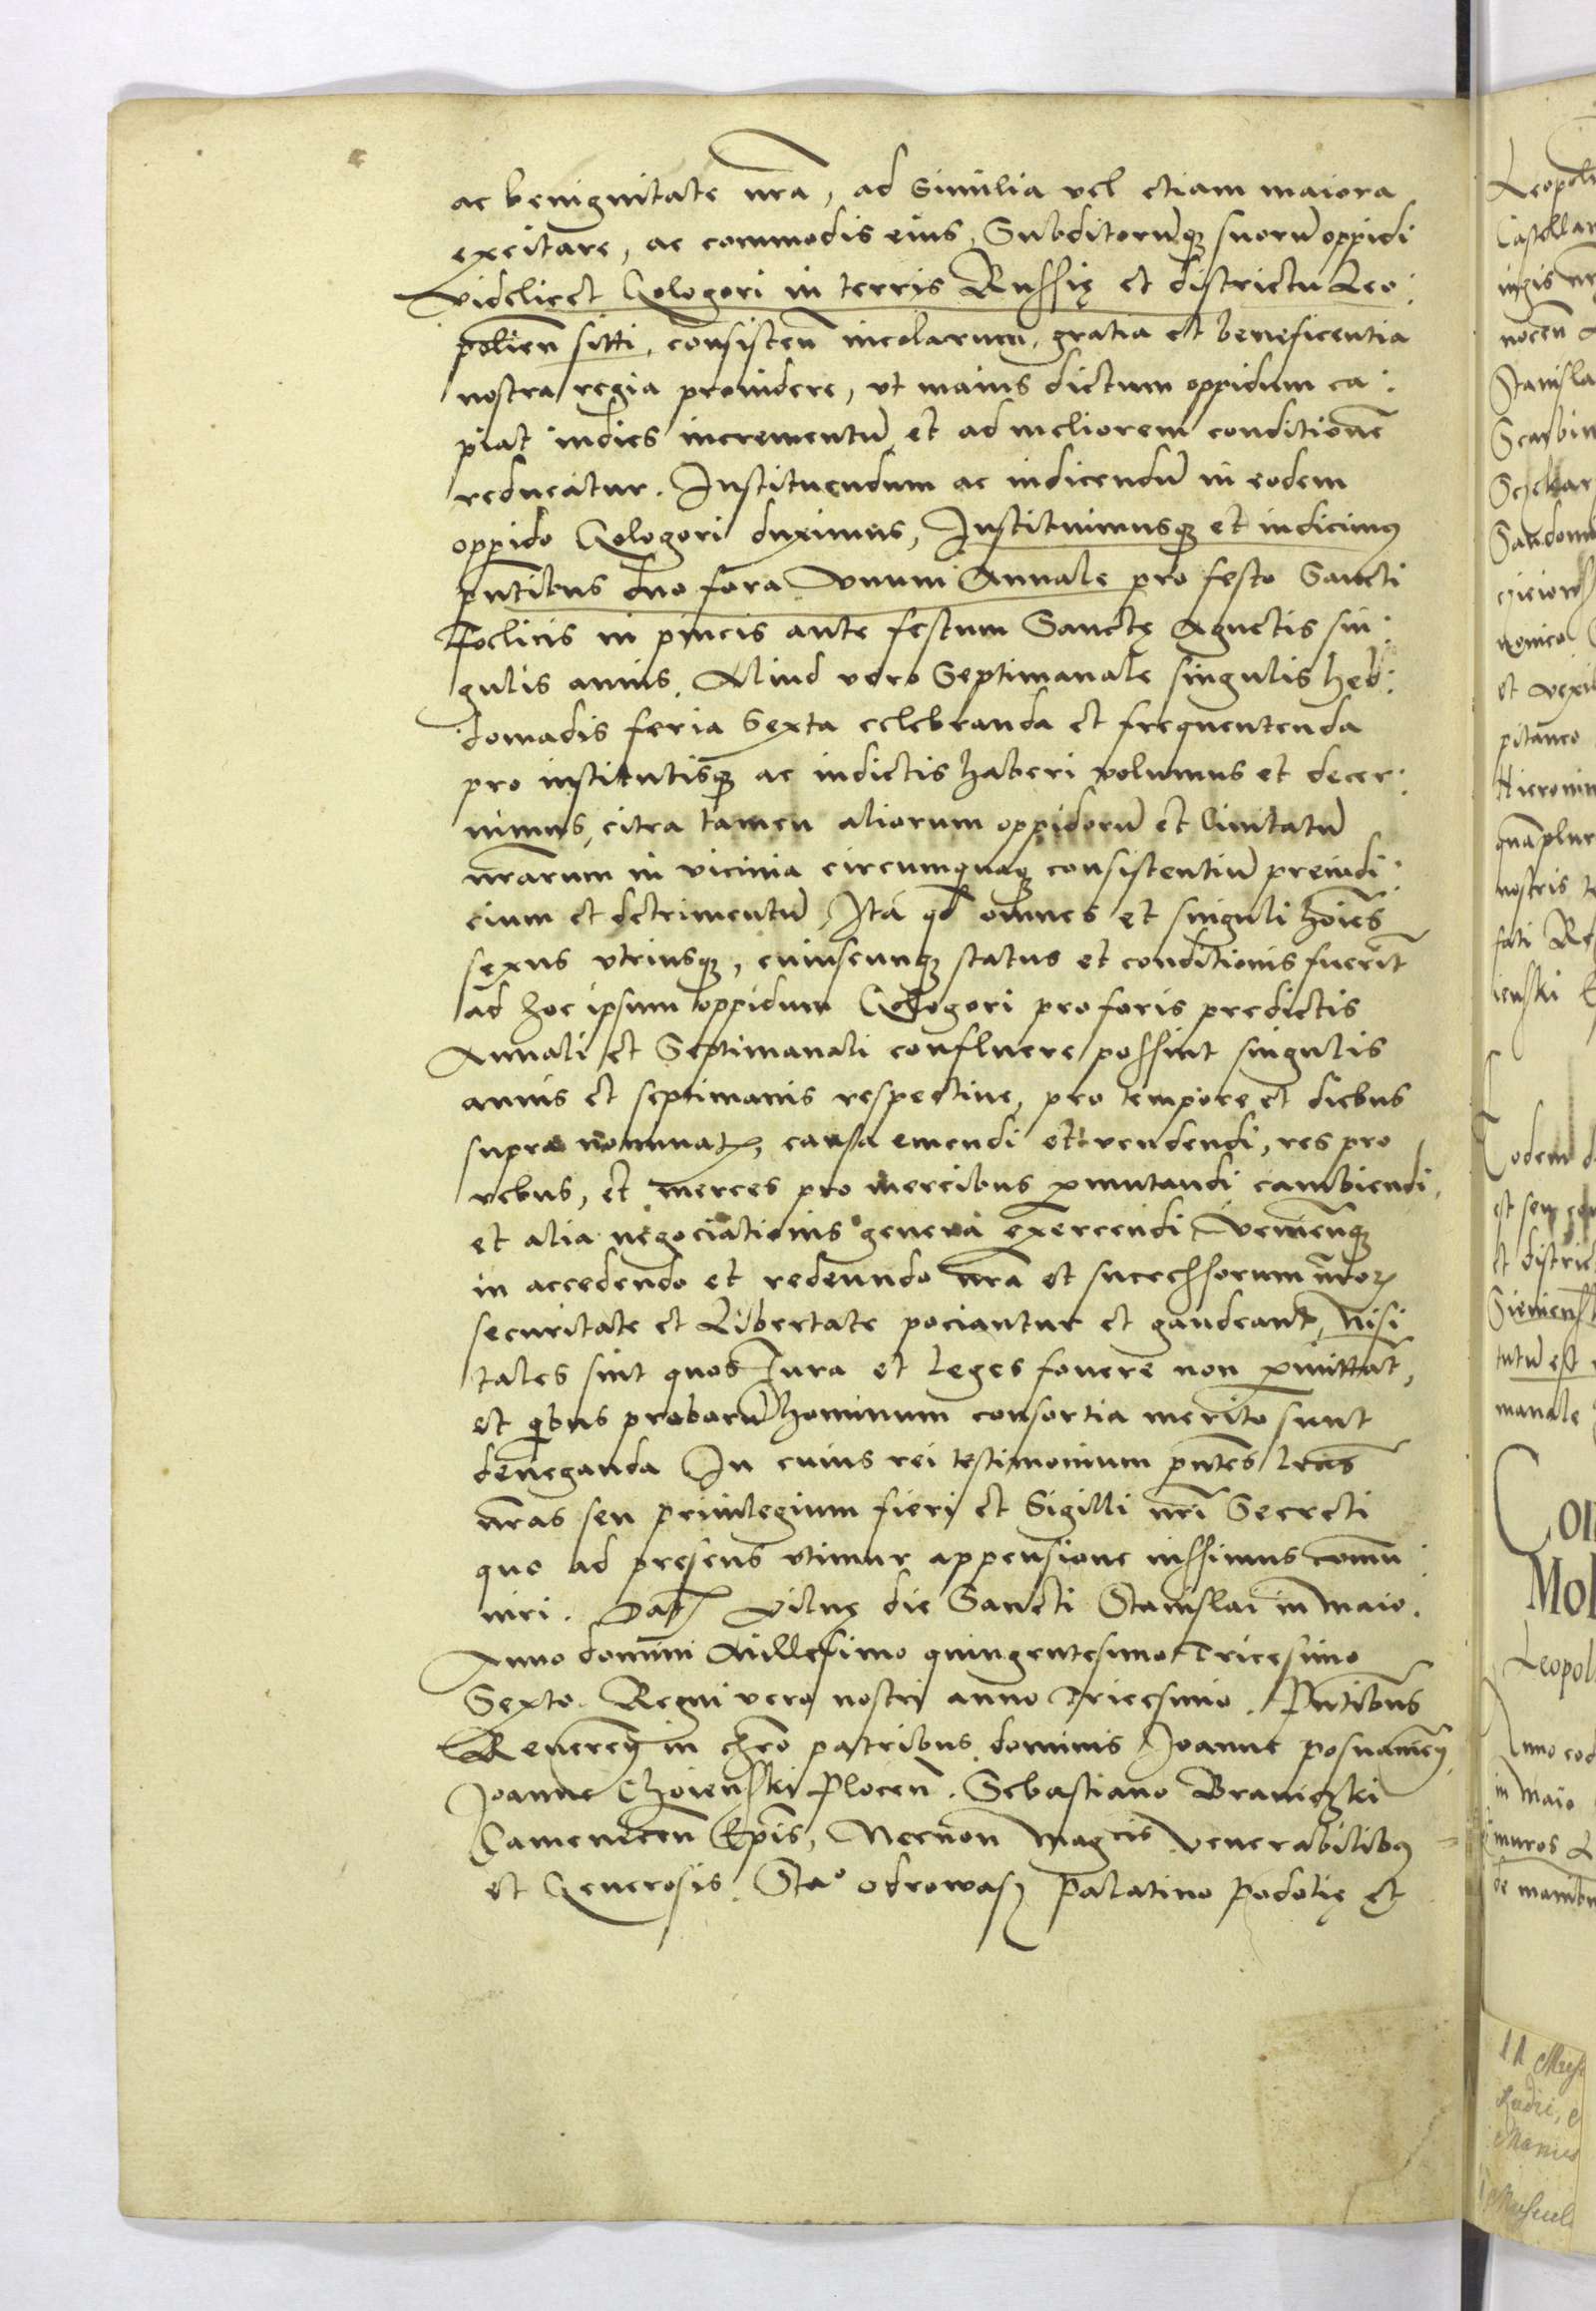 ac benignitate nra, ad similia vel etiam maiora
excitare, ac commodis eius, Subditorūq3 suorū oppidi
videlicet Gologori in terris Russię et districtu Leo:
polien sitti, consisten incolarum, gratia et beneficentia
nostra regia prouidere, vt maius dictum oppidum ca:
piat indies incrementū et ad meliorem conditionē
reducatur. Instituendum ac indicendū in eodem
oppido Gologori duximus, Instituimusq3 et indicimus
pntibus duo fora Vnum Annale pro festo Sancti
Foelicis in pincis ante festum Sanctę Agnetis sin:
gulis annis. Aliud vero Septimanale singulis heb:
domadis feria Sexta celebranda et frequentenda
pro institutisq3 ac indictis haberi volumus et decer:
nimus, citra tamen aliorum oppidorū et Ciuitatū
nrarum in vicinia circumquaq3 consistentiū preiudi:
cium et detrimentū, Ita qd omnes et singuli hoies
sexus vtriusq3, cuiuscunq3 status et conditionis fuerit
ad hoc ipsum oppidum Gologori pro foris predictis
Annali et Septimanali confluere possint singulis
annis et septimanis respectiue, pro tempore et diebus
supra nominatis, causa emendi et vendendi, res pro
rebus, et merces pro mercibus pmutandi cambiendi,
et alia negociationis genera exercendi, Veniendiq3
in accedendo et redeundo nra et successorum nror
securitate et Libertate pociantur et gaudeant, Nisi
tales sint quos Iura et leges fouere non pmittat,
et qibus proborū hominum consortia merito sunt
deneganda In cuius rei testimonium pntes lras
nras seu priuilegium fieri et Sigilli nri Secreti
quo ad presens vtimur appensione iussimus comu:
niri. Dat Vilnę die Sancti Stanislai in Maio.
Anno domini Millesimo quingentesimo Tricesimo
Sexto. Regni vero nostri anno Tricesimo. Pntibus
Reueren in chro patribus dominis Joanne posnanien
Joanne Choienski Plocen. Sebastiano Braniczki
Camenecen Epis, Necnon Magcis Venerabilibus
et Generosis. Stao Odrowasz Palatino Podolię et
Leopoli
Castellan
nocen
Stanisla
Hieronim
quaplur
nostris
Eodem
et distric
manale
Con
Mol
Leopol
Anno eod
in Maio
muros